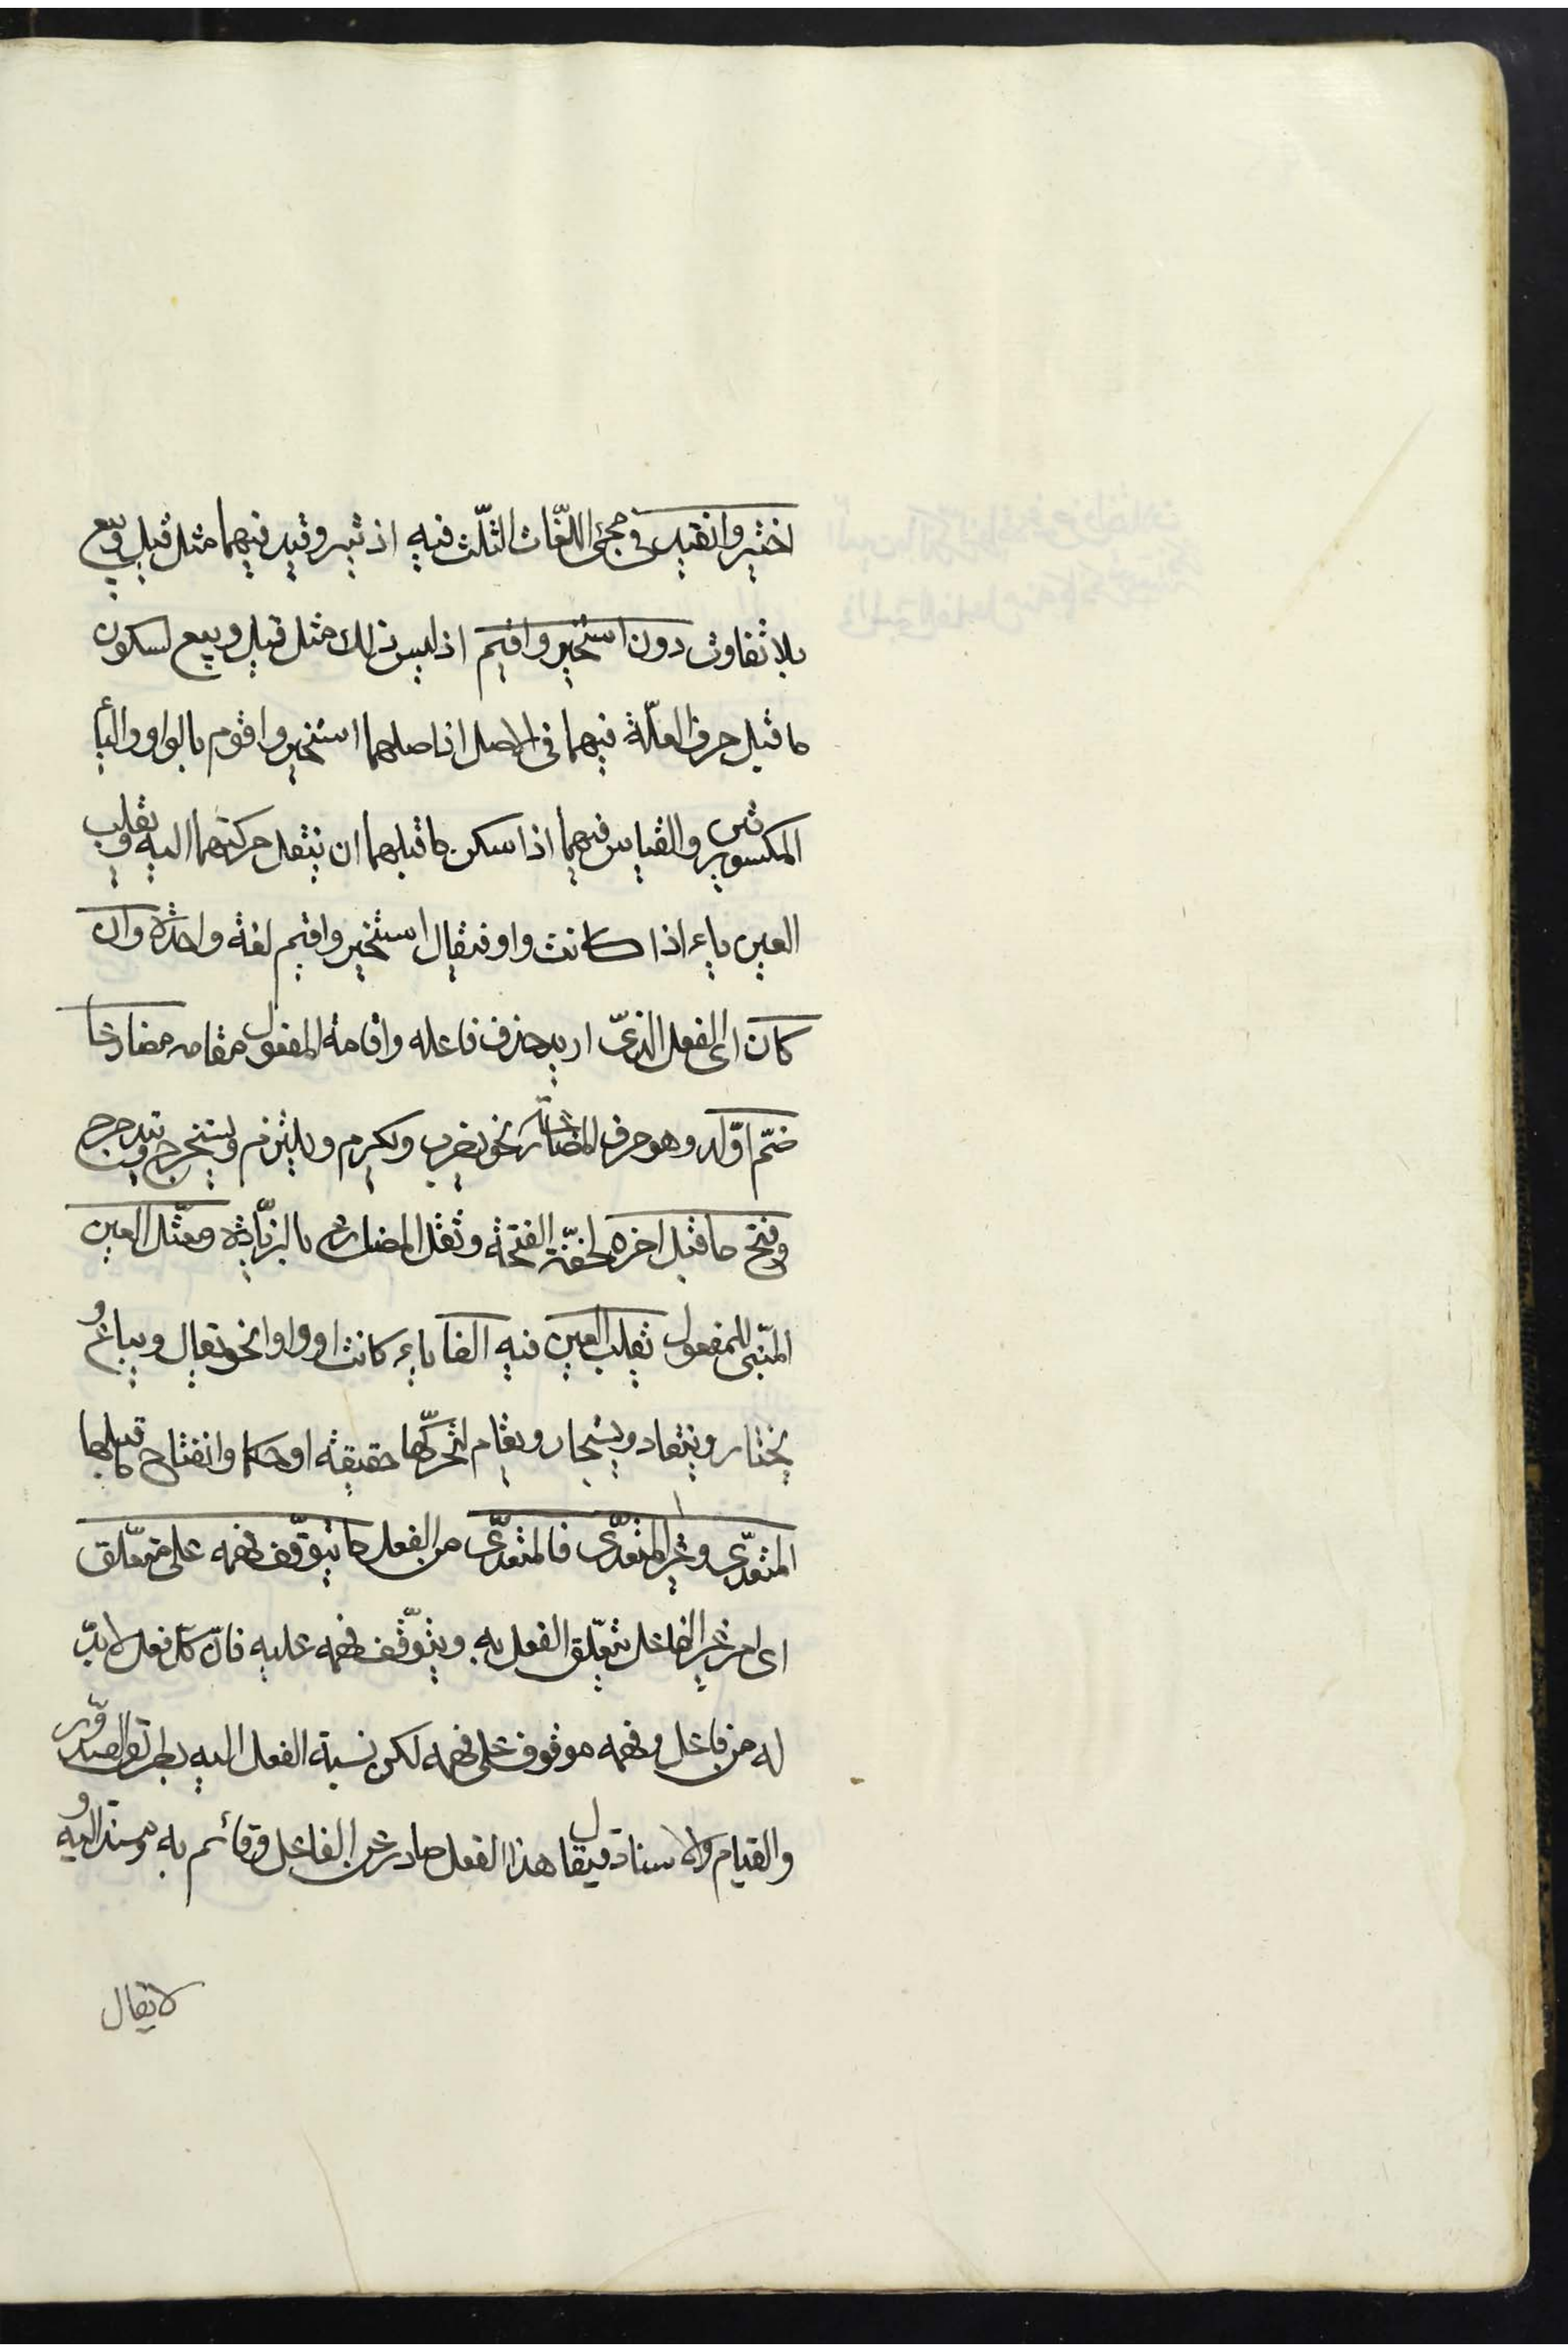 اختير وانقيد فى مجئ اللّغات الثّلث فيه اذ تير وقيد فيهما مثل قيل وبيع
بلا تفاوت دون استخير واقيم اذ ليس ذلك مثل قيل وبيع لسكون
ما قبل حرف العلّة فيهما فى الاصل اذ اصلهما استخير واقوم بالواو والياء
المكسورتين والقياس فيهما اذا سكن ما قبلهما ان ينقل حركتهما اليه ويقلب
العين ياء اذا كانت واو فيقال استخير واقيم لغة واحدة وان
كان اى الفعل الذى اريد حذف فاعله واقامة المفعول مقامه مضارعا
ضمّ اوّله وهو حرف المضارعة نحو يضرب ويكرم ويلتزم ويستخرج ويتدحرج
وفتح ما قبل اخره لخفّة الفتحة وثقل المضارع بالزّيادة ومعتّل العين
المبنّى للمفعول تقلب العين فيه الفا ياء كانت او واوا نحو يقال ويباع و
يختار وينقاد ويستخار ويقام لتحرّكها حقيقة او حكما وانفتاح ما قبلها
المتعدّى وغير المتعدّى فالمتعدّى من الفعل ما يتوقّف فهمه على متعلّق
اى امر غير الفاعل يتعلّق الفعل به ويتوقّف فهمه عليه فانّ كلّ فعل لا بدّ
له من فاعل وفهمه موقوف على فهمه لكن نسبة الفعل اليه بطريق الصدور
والقيام والاسناد فيقال هذا الفعل صادر عن الفاعل وقائم به ومسند اليه و
لا يقال